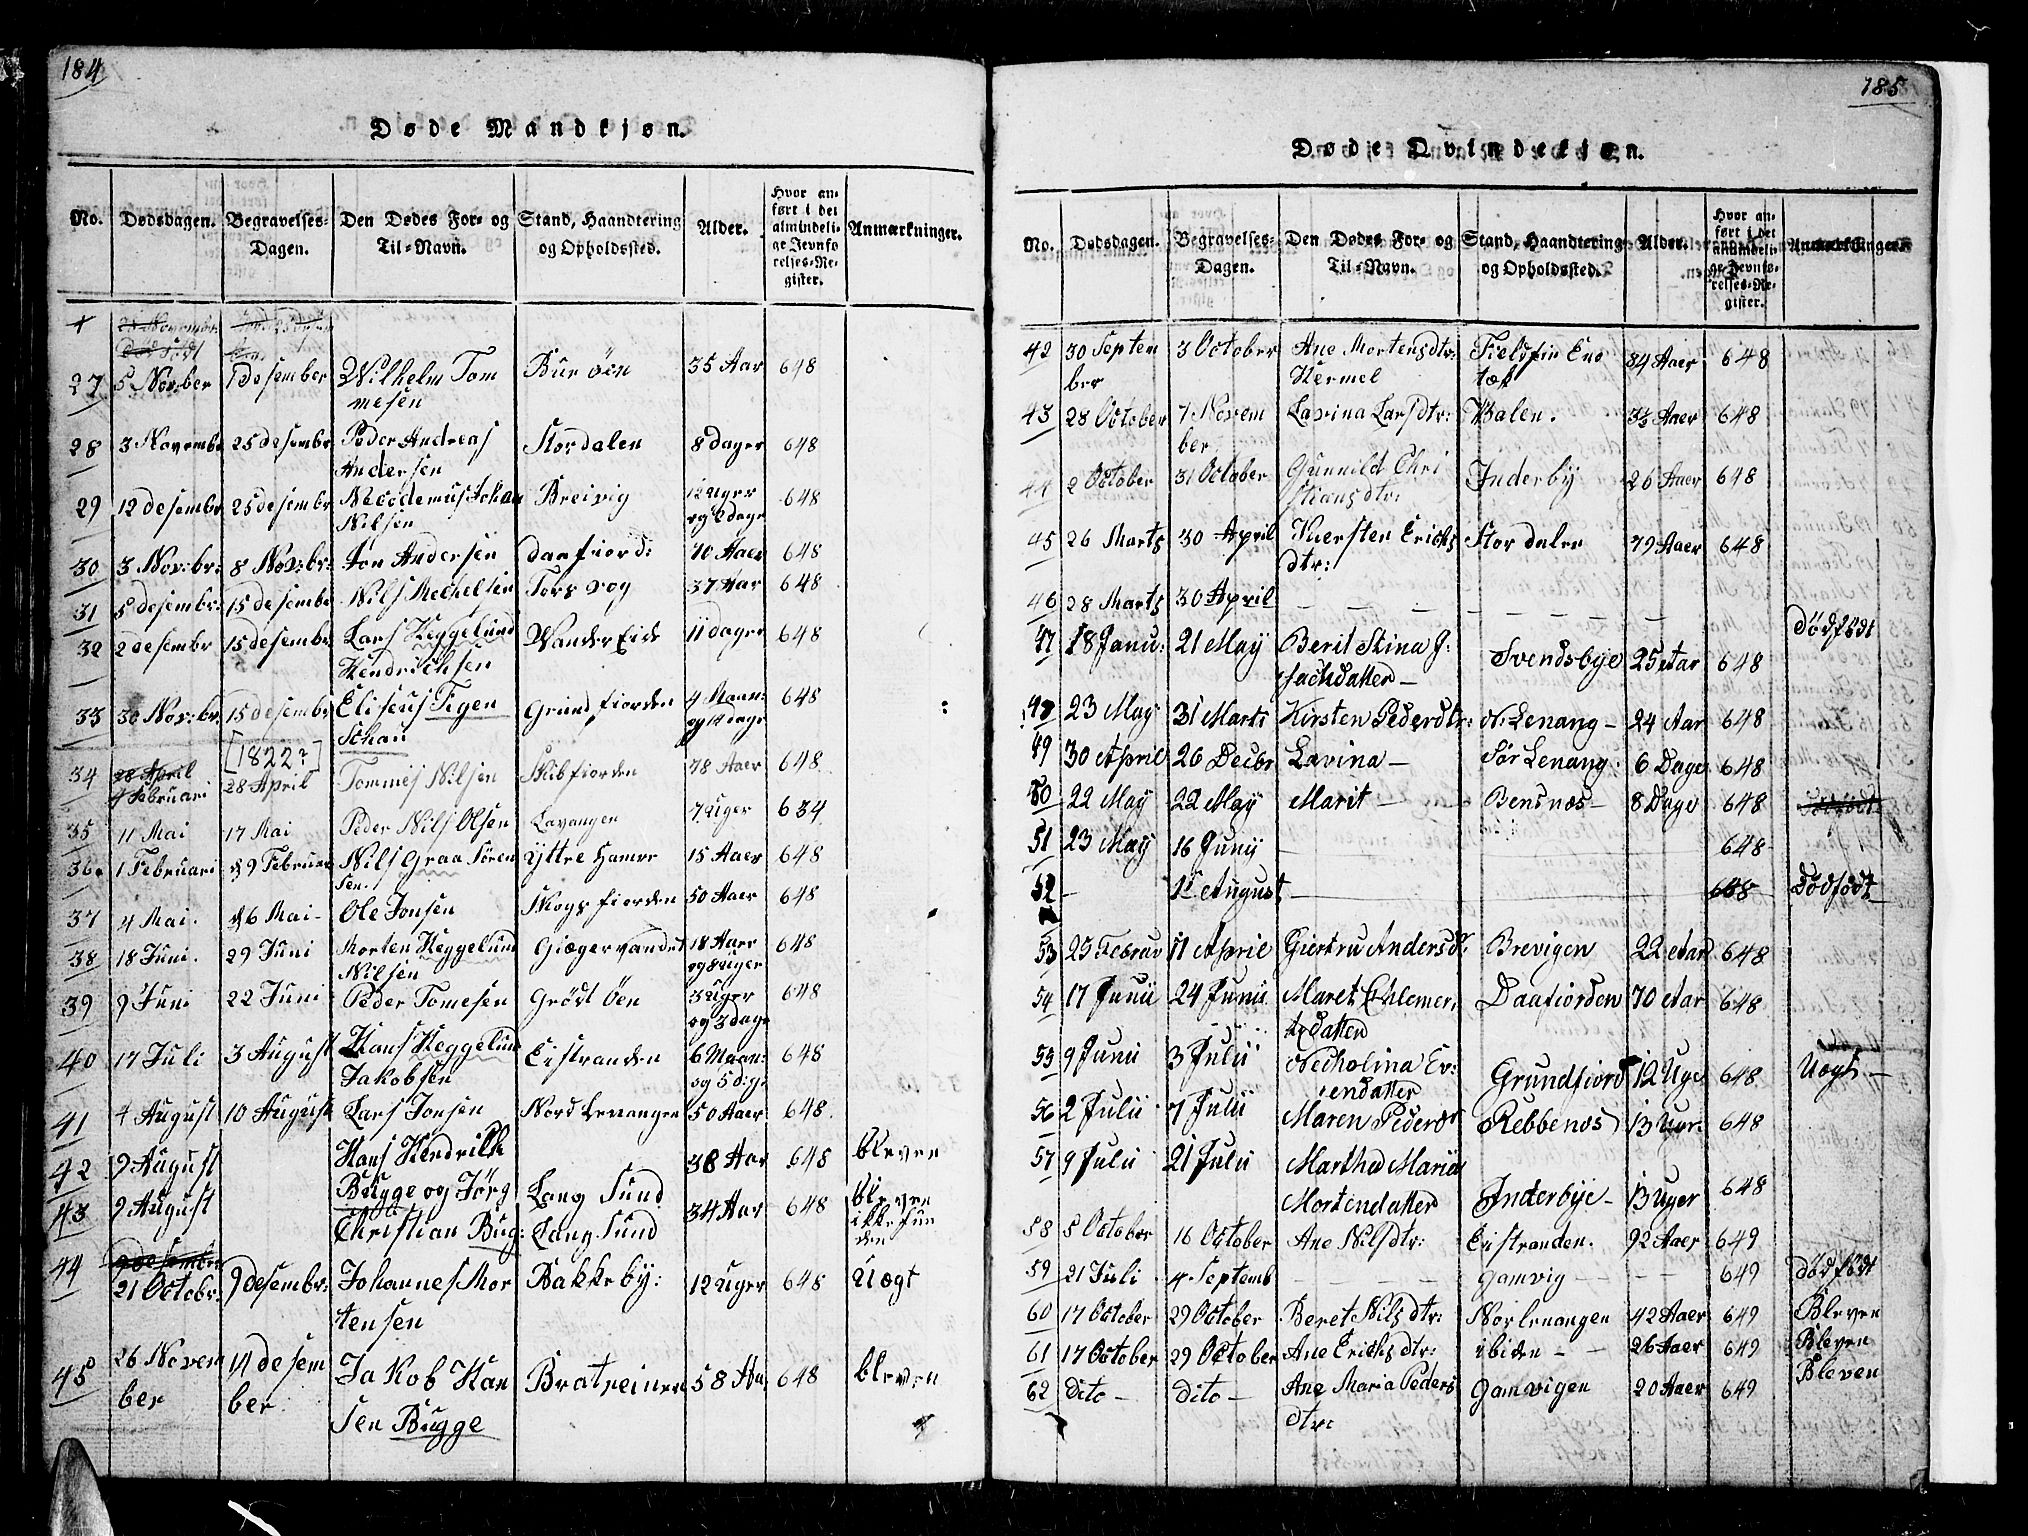 184
Døde Mandkjøn.
No. Dødsdagen. Begravelses-Dagen. Den Dødes For- og Til-Navn. Stand, Haandtering og Opholdssted. Alder. Hvor anført i det almindelige Jevnførelses-Register. Anmærkninger.
27 5 Nov:ber 1 desember Wilhelm Tommesen Bur öen 35 Aar 648
28 3 Novembr 25 desembr Peder Andreas Andersen Stordalen 8 dager 648
29 12 desembr 25 desembr Nicodemus Johan Nilsen Breivig 12 Uger og 2 dage 648
30 3 Nov:br: 8 Nov:br: Jon Andersen daafiord: 70 Aaer 648
31 5 desembr: 15 desembr Nils Mechelsen Torsvog 37 Aar 648
32 2 desembr 15 desembr Lars Heggelund Hendrichsen Wander Eide 11 dager 648
33 30 Nov:br. 15 desembr Eliseus Figenschau Grundfiorden 4 Maan: og 14 dage 648
[1822?]
34 28 April 4 Februari 28 April Tommes Nilsen Skibfiorden 78 Aaer 648
35 11 Mai 17 Mai Peder Nils Olsen Lavangen 7 Uger 634
36. 1 Februari 9 Februar Nils Graa Sörensen. Yttre Hamer 15 Aaer 648
37 4 Mai. 6 Mai Ole Jonsen Skogsfiorden 50 Aaer 648
38 18 Juni. 29 Juni Morten Heggelund Nilsen Giægervandet 18 Aaer og 8 Uger 648
39 9 Juni 22 Juni Peder Tomesen Grödt Öen 3 Uger og 3 dage 648
40 17 Juli 3 August Hans Heggelund Jakobsen Eistranden 6 Maan: og 5 d:g: 648
41 4 August 10 August Lars Jonsen Nord Levangen 50 Aaer 648.
42 9 August Hans Hendrikk Bugge og Jörg Lang Sund 38 Aar 648 bleven
43 9 August Christian Bug: Lang Sund 34 Aar 648 bleven ikke funden
44 21 Octobr: 9 desembr: Johannes Mortensen Bakkeby: 12 Uger 648 Uægt
45 26 November 14 desember Jakob Hansen Bugge Bratreinen 58 Aa. 648 bleven
185
Døde Qvindekjøn.
No. Dødsdagen. Begravelses-Dagen. Den Dødes For- og Til-Navn. Stand, Haandtering og Opholdssted. Alder. Hvor anført i det almindelige Jevnførelses-Register. Anmærkninger.
42 30 September 3 October Ane Mortensdtr: Hermel Fieldfin 34 Aaer 648
43 28 October 7 November Lavina Larsdtr: Walen. 3½ Aaer 648
44 2 October 31 October Gunnild Christiansdtr: Inderby 26 Aaer 648
45 26 Marts 30 April Kiersten Erichsdtr: Stordalen 79 Aaer 648
46 28 Marts 30 April — — — — — Dödfödt
47 18 Janu: 21 May Berit Stina Isachdatter — Svendsbye 25 Aar 648
48 23 May 31 Marts Kirsten Pedersdtr: N: Lenang — 24 Aar 648
49 30 April 26 Decbr Lavina — Sör Lenang. 6 Dage 648
50 22 May 22 May Marit — Bensnæs — 8 Dage 648
51 23 May 16 Junij 648
52 — 1t August — 648 Dödfödt
53 25 Februar 11 April Giertru Andersdr Brevigen 22 Aar 648
54 17 Junii 24 Junii Maret Datter Daafiorden 70 Aar 648
55 9 Junii 3 Julii Nicholina Evendatter Grundfiord 12 Uge 648 Uægt —
56 2 Julii 7 Julii Maren Pedersdt Rebbenes 13 648
57 9 Julii 21 Julii Martha Maria Mortendatter Inderbye — 13 Uger 648
58 8 October 16 October Ane Nilsdtr: Eistranden. 92 Aaer 649
59 21 Juli 4 Septemb — — — — Gamvig — — — 649 Dödfödt
60 17 October 29 October Beret Nilsdtr: Norlenangen 42 Aaer 649 Bleven
61 17 October 29 October Ane Erichsdtr: ibiden — — 26 Aaer 649 Bleven
62 Dito — Dito — Ane Maria Pedersdtr: Gamvigen 20 Aaer 649 Bleven